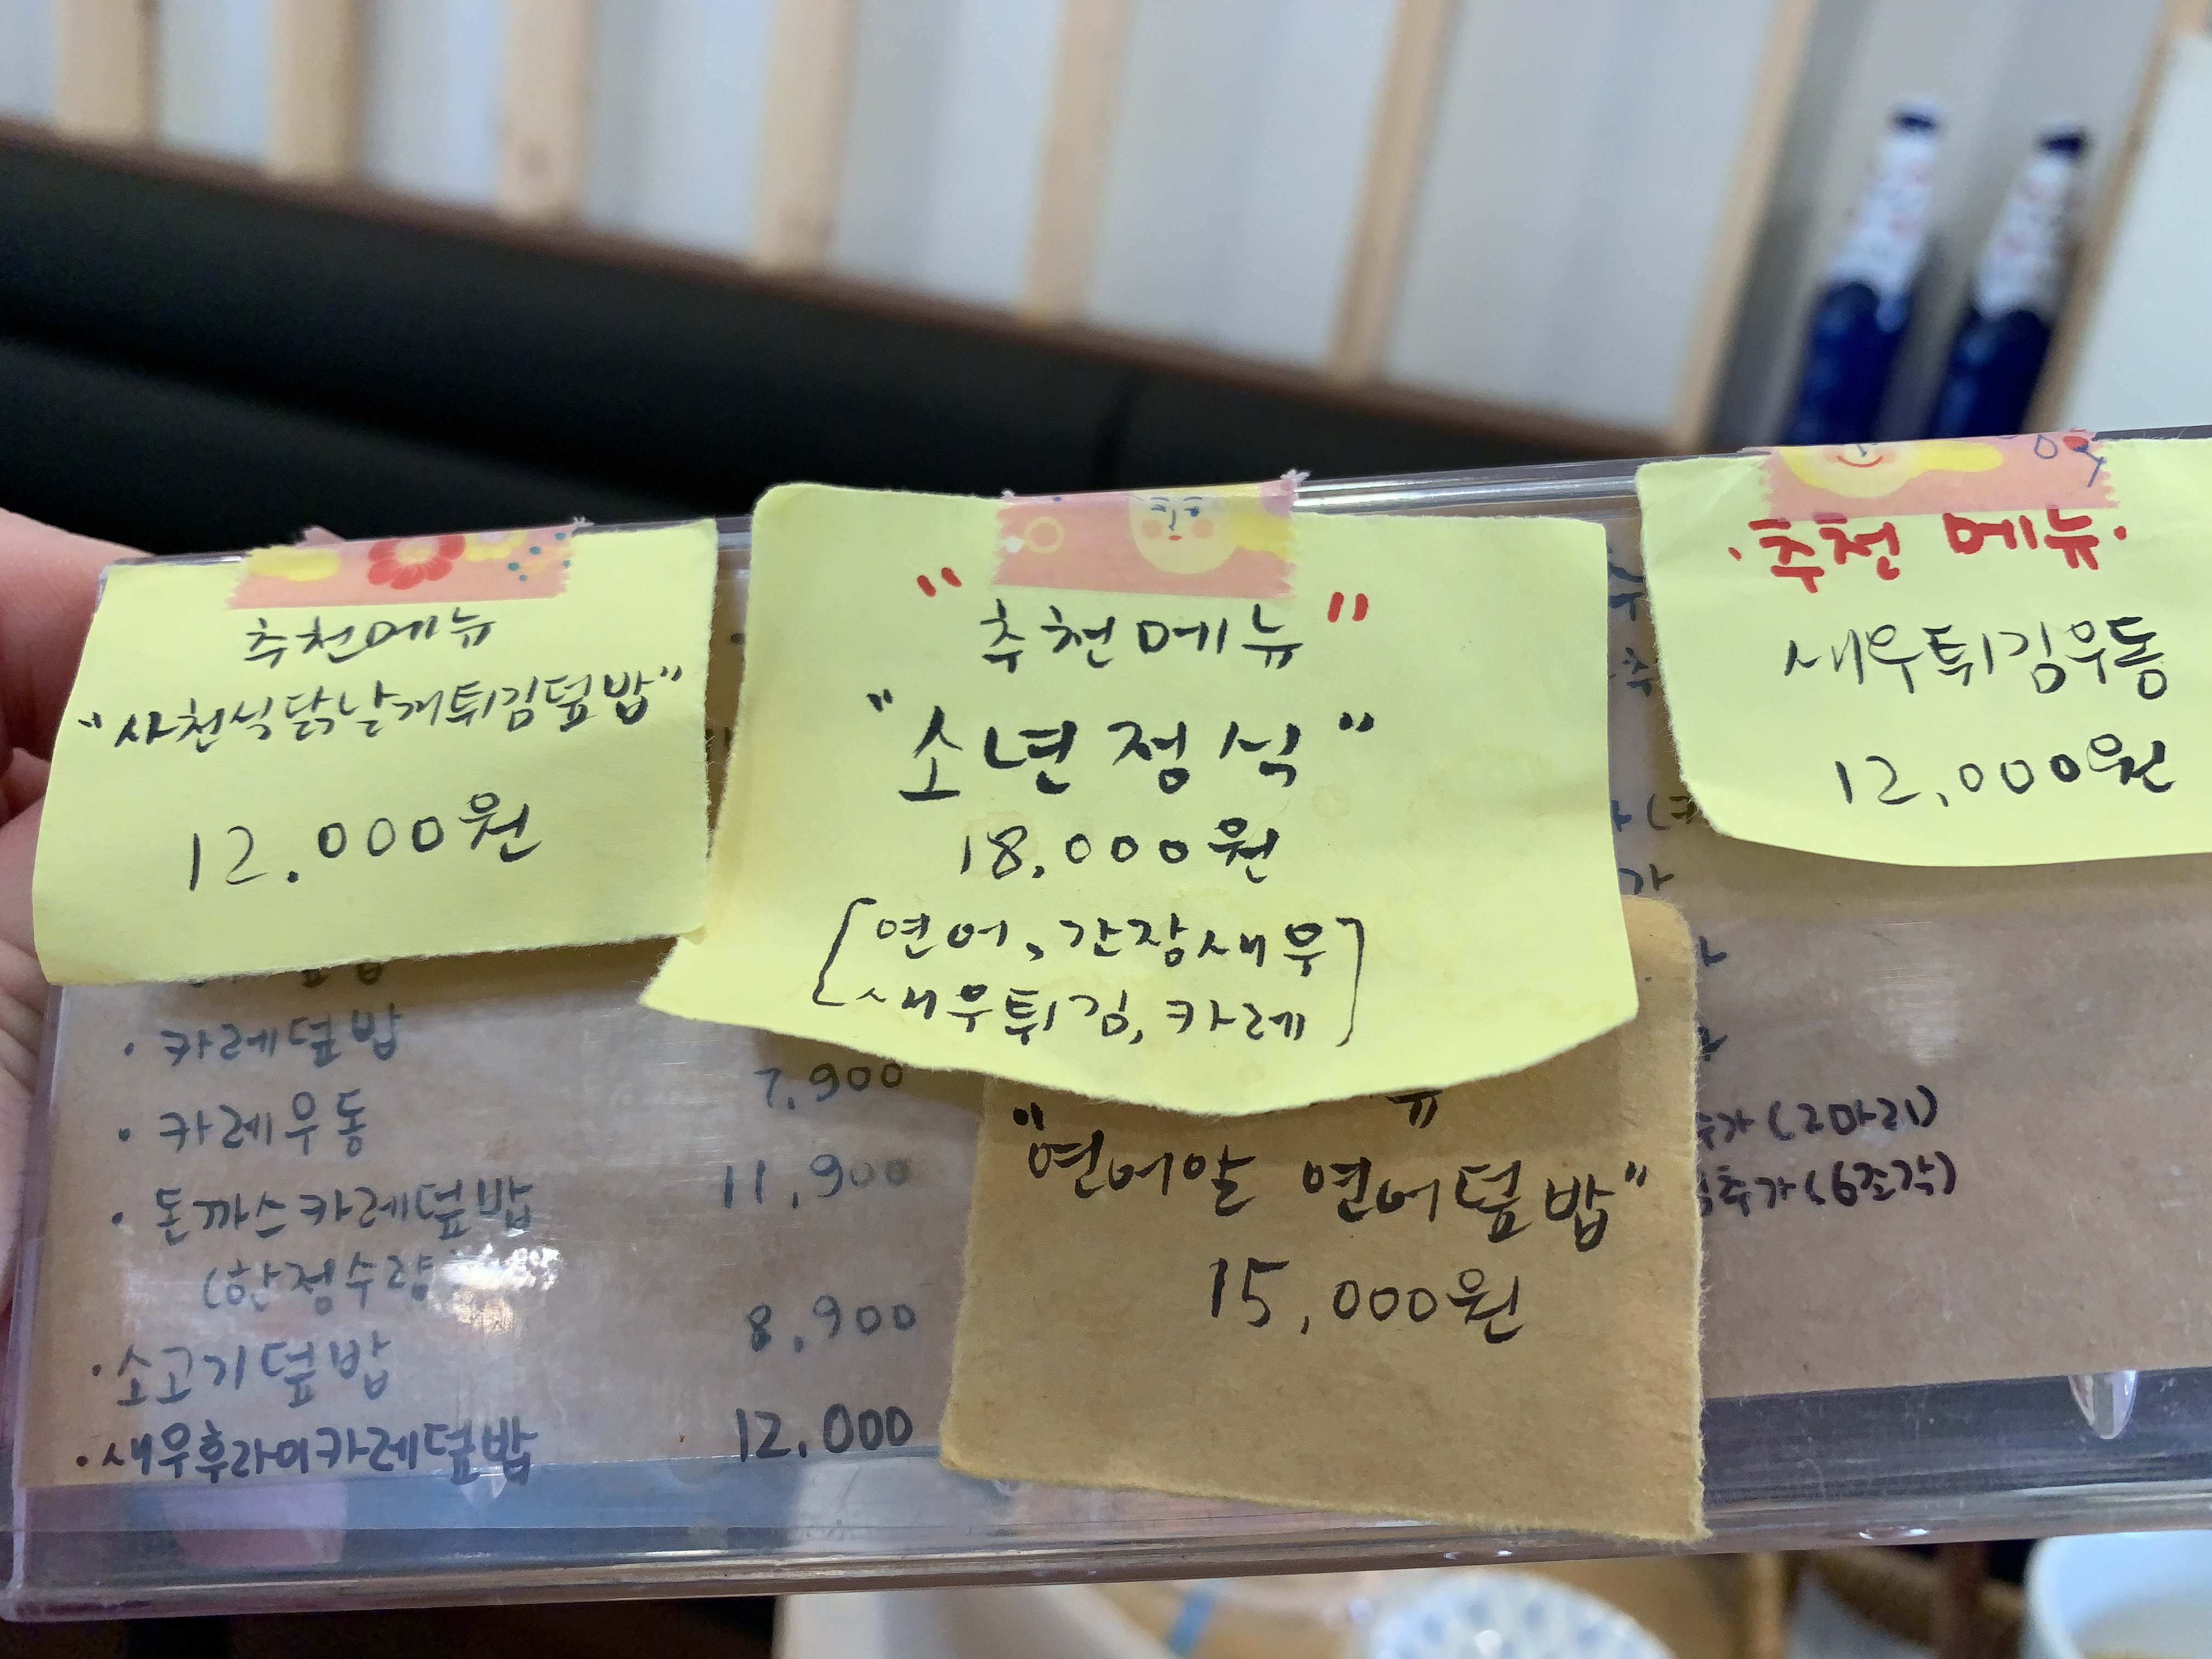 추천메뉴
"사천식닭날개튀김덮밥"
12.000원
"추천메뉴"
"소년정식"
18,000원
[연어, 간장새우
새우튀김, 카레]
·추천 메뉴·
새우튀김우동
12,000원
"연어알 연어덮밥"
15,000원
· 카레덮밥
· 카레우동 7,900
· 돈까스카레덮밥 11,900
(한정수량
·소고기덮밥 8,900
·새우후라이카레덮밥 12,000
추가(2마리)
추가(6조각)